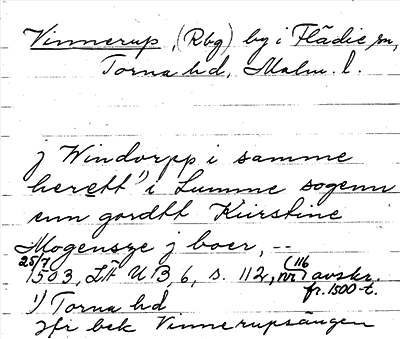 Vinnerup, (Rbg) by i Flädie sn,
Torna hd, Malm. l.
j Windorpp i samme
herett 1) i Lumme sogenn
enn gordtt Kiirstine
Mogensze j boer, --
25/7 1503, LÄ U B, 6, s. 112, (nr 116) avskr.
fr. 1500-t.
1) Torna hd
Jfr bek Vinnerupsängen